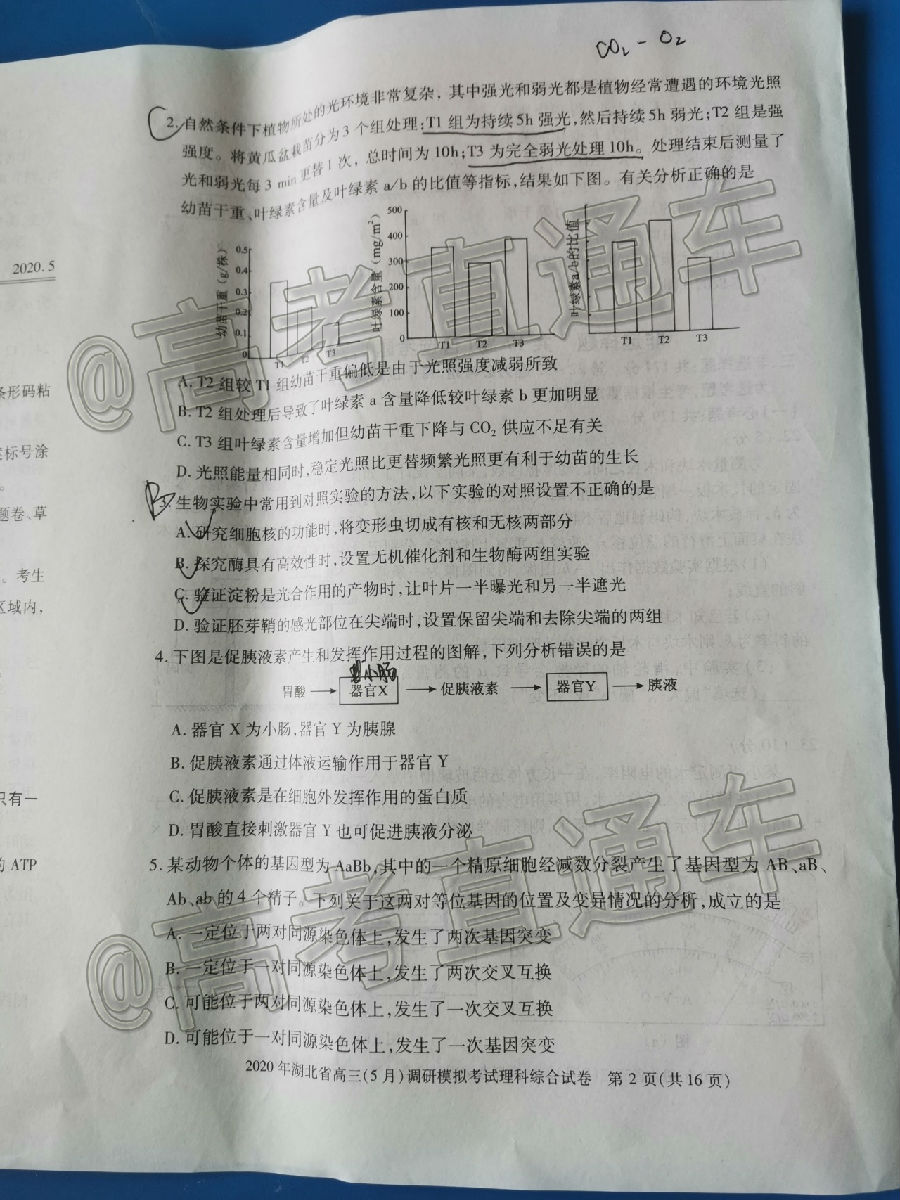 CO₂ - O₂
2. 自然条件下植物所处的光环境非常复杂，其中强光和弱光都是植物经常遭遇的环境光照
强度。将黄瓜盆栽苗分为3个组处理：T1组为持续5h强光，然后持续5h弱光；T2组是强
光和弱光每3min更替1次，总时间为10h；T3为完全弱光处理10h。处理结束后测量了
幼苗干重、叶绿素含量及叶绿素a/b的比值等指标，结果如下图。有关分析正确的是
幼苗干重（g/株）
0.5
0.4
0.3
0.2
0.1
0
T1
T2
T3
叶绿素含量（mg/m²）
500
400
300
200
100
0
T1
T2
T3
叶绿素a/b的比值
T1
T2
T3
A. T2组较T1组幼苗干重偏低是由于光照强度减弱所致
B. T2组处理后导致了叶绿素a含量降低较叶绿素b更加明显
C. T3组叶绿素含量增加但幼苗干重下降与CO₂供应不足有关
D. 光照能量相同时，稳定光照比更替频繁光照更有利于幼苗的生长
B
3. 生物实验中常用到对照实验的方法，以下实验的对照设置不正确的是
A. 研究细胞核的功能时，将变形虫切成有核和无核两部分
B. 探究酶具有高效性时，设置无机催化剂和生物酶两组实验
C. 验证淀粉是光合作用的产物时，让叶片一半曝光和另一半遮光
D. 验证胚芽鞘的感光部位在尖端时，设置保留尖端和去除尖端的两组
4. 下图是促胰液素产生和发挥作用过程的图解，下列分析错误的是
小肠
胃酸 → 器官X → 促胰液素 → 器官Y → 胰液
A. 器官X为小肠，器官Y为胰腺
B. 促胰液素通过体液运输作用于器官Y
C. 促胰液素是在细胞外发挥作用的蛋白质
D. 胃酸直接刺激器官Y也可促进胰液分泌
5. 某动物个体的基因型为AaBb，其中的一个精原细胞经减数分裂产生了基因型为AB、aB、
Ab、ab的4个精子。下列关于这两对等位基因的位置及变异情况的分析，成立的是
A. 一定位于两对同源染色体上，发生了两次基因突变
B. 一定位于一对同源染色体上，发生了两次交叉互换
C. 可能位于两对同源染色体上，发生了一次交叉互换
D. 可能位于一对同源染色体上，发生了一次基因突变
2020年湖北省高三（5月）调研模拟考试理科综合试卷 第2页（共16页）
2020.5
条形码粘
标号涂
题卷、草
。考生
区域内，
只有一
的ATP
@高考直通车
@高考直通车